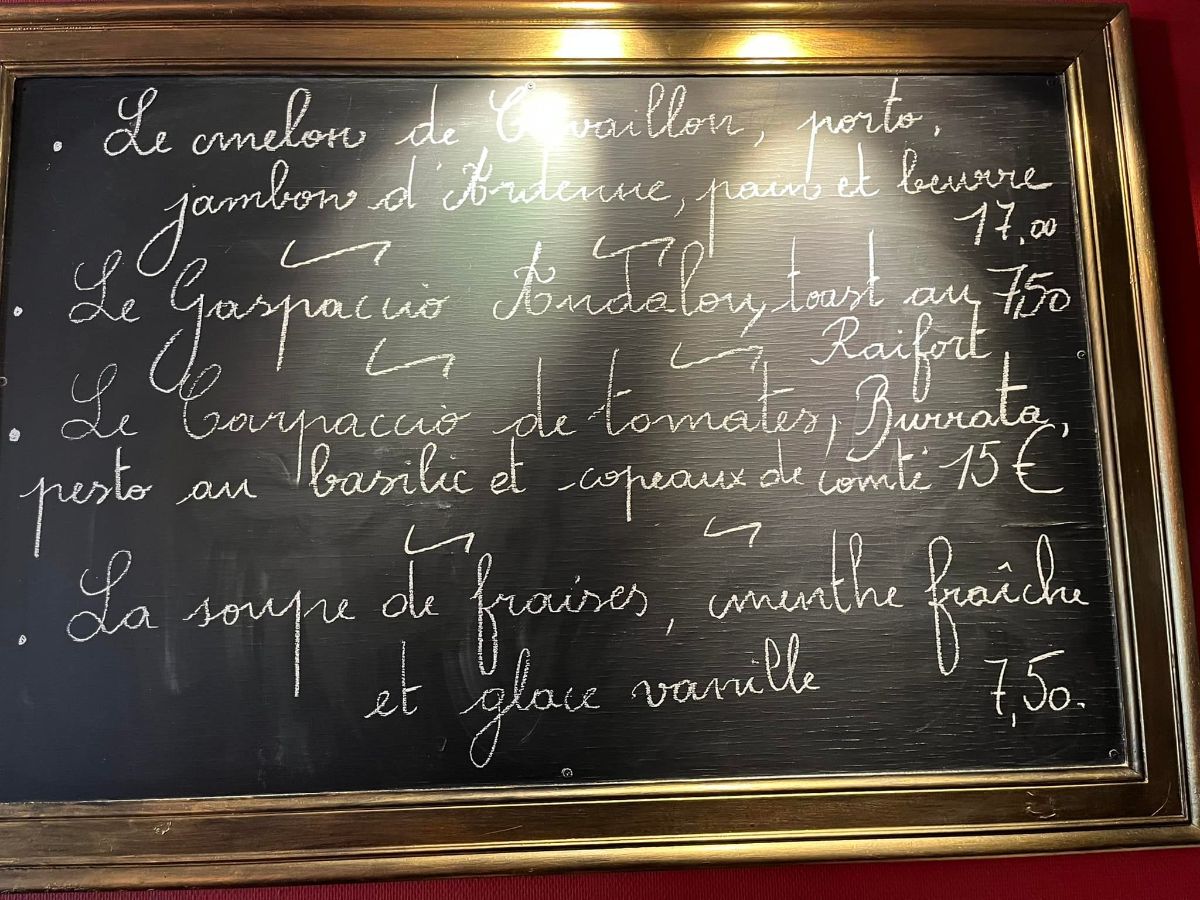 . Le melon de Cavaillon, porto,
jambon d'Ardenne, pain et beurre
17,00
. Le Gaspaccio Andalou, toast au 7,50
Raifort
. Le Carpaccio de tomates, Burrata,
pesto au basilic et copeaux de comté 15 €
. La soupe de fraises, menthe fraîche
et glace vanille 7,50.